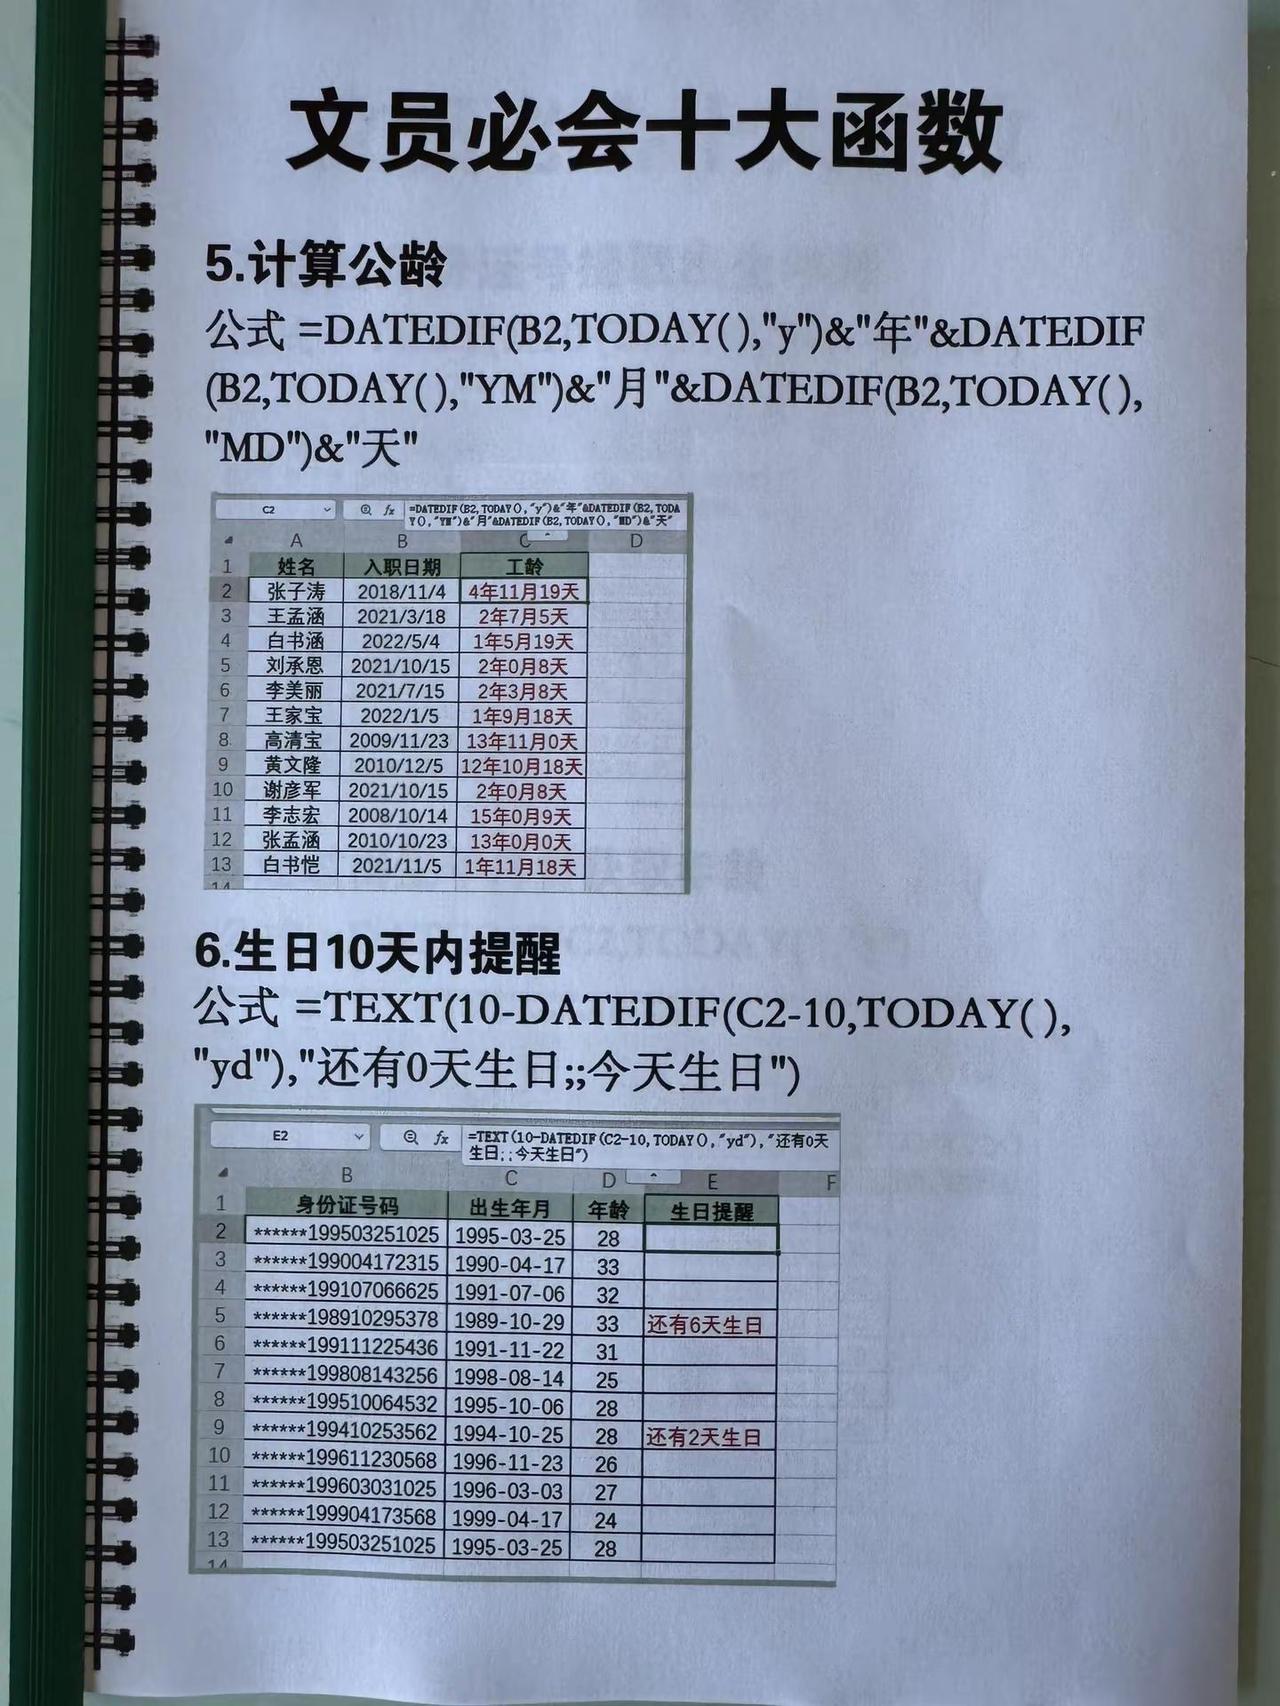 文员必会十大函数
5.计算公龄
公式 =DATEDIF(B2,TODAY(),"y")&"年"&DATEDIF
(B2,TODAY(),"YM")&"月"&DATEDIF(B2,TODAY(),
"MD")&"天"
C2 fx =DATEDIF(B2,TODAY(),"y")&"年"&DATEDIF(B2,TODA
Y(),"YM")&"月"&DATEDIF(B2,TODAY(),"MD")&"天"
A B C D
1 姓名 入职日期 工龄
2 张子涛 2018/11/4 4年11月19天
3 王孟涵 2021/3/18 2年7月5天
4 白书涵 2022/5/4 1年5月19天
5 刘承恩 2021/10/15 2年0月8天
6 李美丽 2021/7/15 2年3月8天
7 王家宝 2022/1/5 1年9月18天
8 高清宝 2009/11/23 13年11月0天
9 黄文隆 2010/12/5 12年10月18天
10 谢彦军 2021/10/15 2年0月8天
11 李志宏 2008/10/14 15年0月9天
12 张孟涵 2010/10/23 13年0月0天
13 白书恺 2021/11/5 1年11月18天
14
6.生日10天内提醒
公式 =TEXT(10-DATEDIF(C2-10,TODAY(),
"yd"),"还有0天生日;;今天生日")
E2 fx =TEXT(10-DATEDIF(C2-10,TODAY(),"yd"),"还有0天
生日;;今天生日")
B C D E F
1 身份证号码 出生年月 年龄 生日提醒
2 ******199503251025 1995-03-25 28
3 ******199004172315 1990-04-17 33
4 ******199107066625 1991-07-06 32
5 ******198910295378 1989-10-29 33 还有6天生日
6 ******199111225436 1991-11-22 31
7 ******199808143256 1998-08-14 25
8 ******199510064532 1995-10-06 28
9 ******199410253562 1994-10-25 28 还有2天生日
10 ******199611230568 1996-11-23 26
11 ******199603031025 1996-03-03 27
12 ******199904173568 1999-04-17 24
13 ******199503251025 1995-03-25 28
14